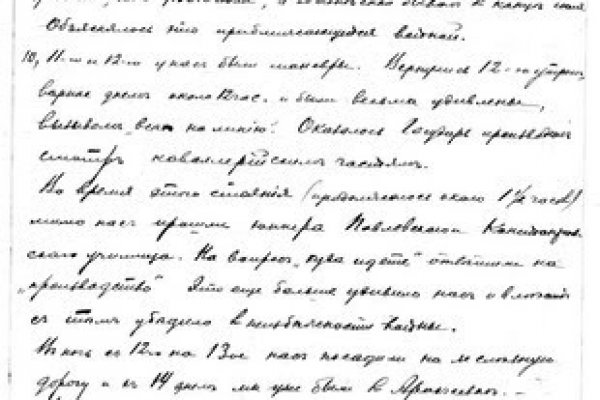 Объяснялось это приближающейся войной.
10, 11-го и 12-го у нас были маневры. Вернулись 12-го утром,
вернее днем около 12 час. и были весьма удивлены,
вызовом „всех на линию". Оказалось Государь производил
смотр кавалерийским частям.
Во время этого стояния (продолжалось около 1½ часов)
мимо нас прошли юнкера Павловского
ского училища. На вопрос „куда идете" ответили на
„производство" Это еще больше удивило нас и
с тем убедило в неизбежности войны.
В ночь с 12-го на 13-ое нас посадили на железную
дорогу и к 14 днем мы уже были в